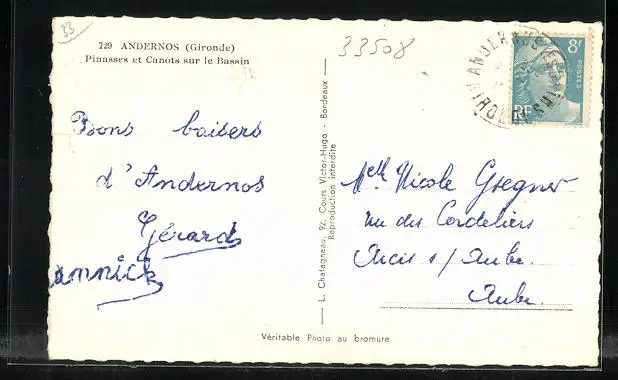 33
729 ANDERNOS (Gironde)
Pinasses et Canots sur le Bassin
33508
8F
POSTES
RF
Bons baisers
d'Andernos
Gérard
annick
L. Chatagneau, 92, Cours Victor-Hugo - Bordeaux
Reproduction interdite
Melle Nicole Gregner
rue des Cordeliers
Arcis s/ Aube.
Aube.
Véritable Photo au bromure